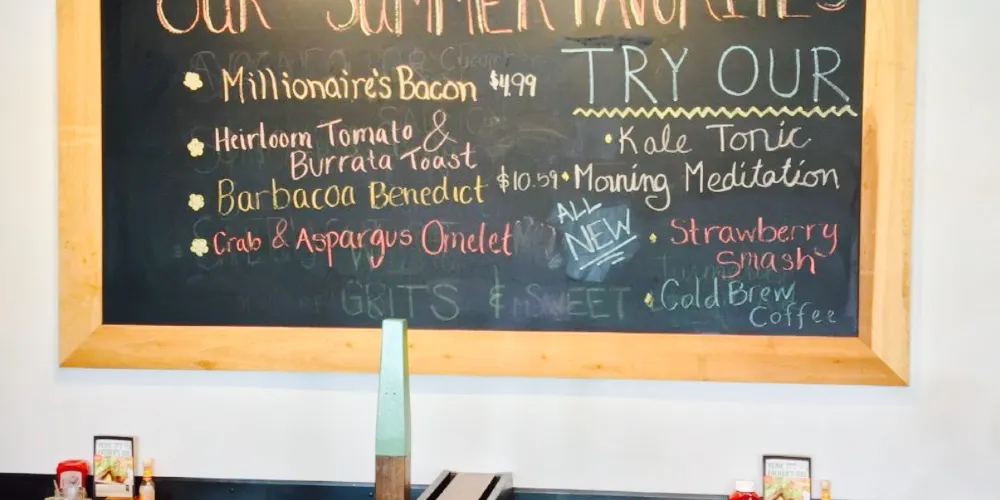 OUR SUMMER FAVORITES
Millionaire's Bacon $4.99
Heirloom Tomato &
Burrata Toast
Barbacoa Benedict $10.59
Crab & Aspargus Omelet
GRITS & SWEET
TRY OUR
Kale Tonic
Morning Meditation
ALL
NEW
Strawberry
Smash
Cold Brew
Coffee